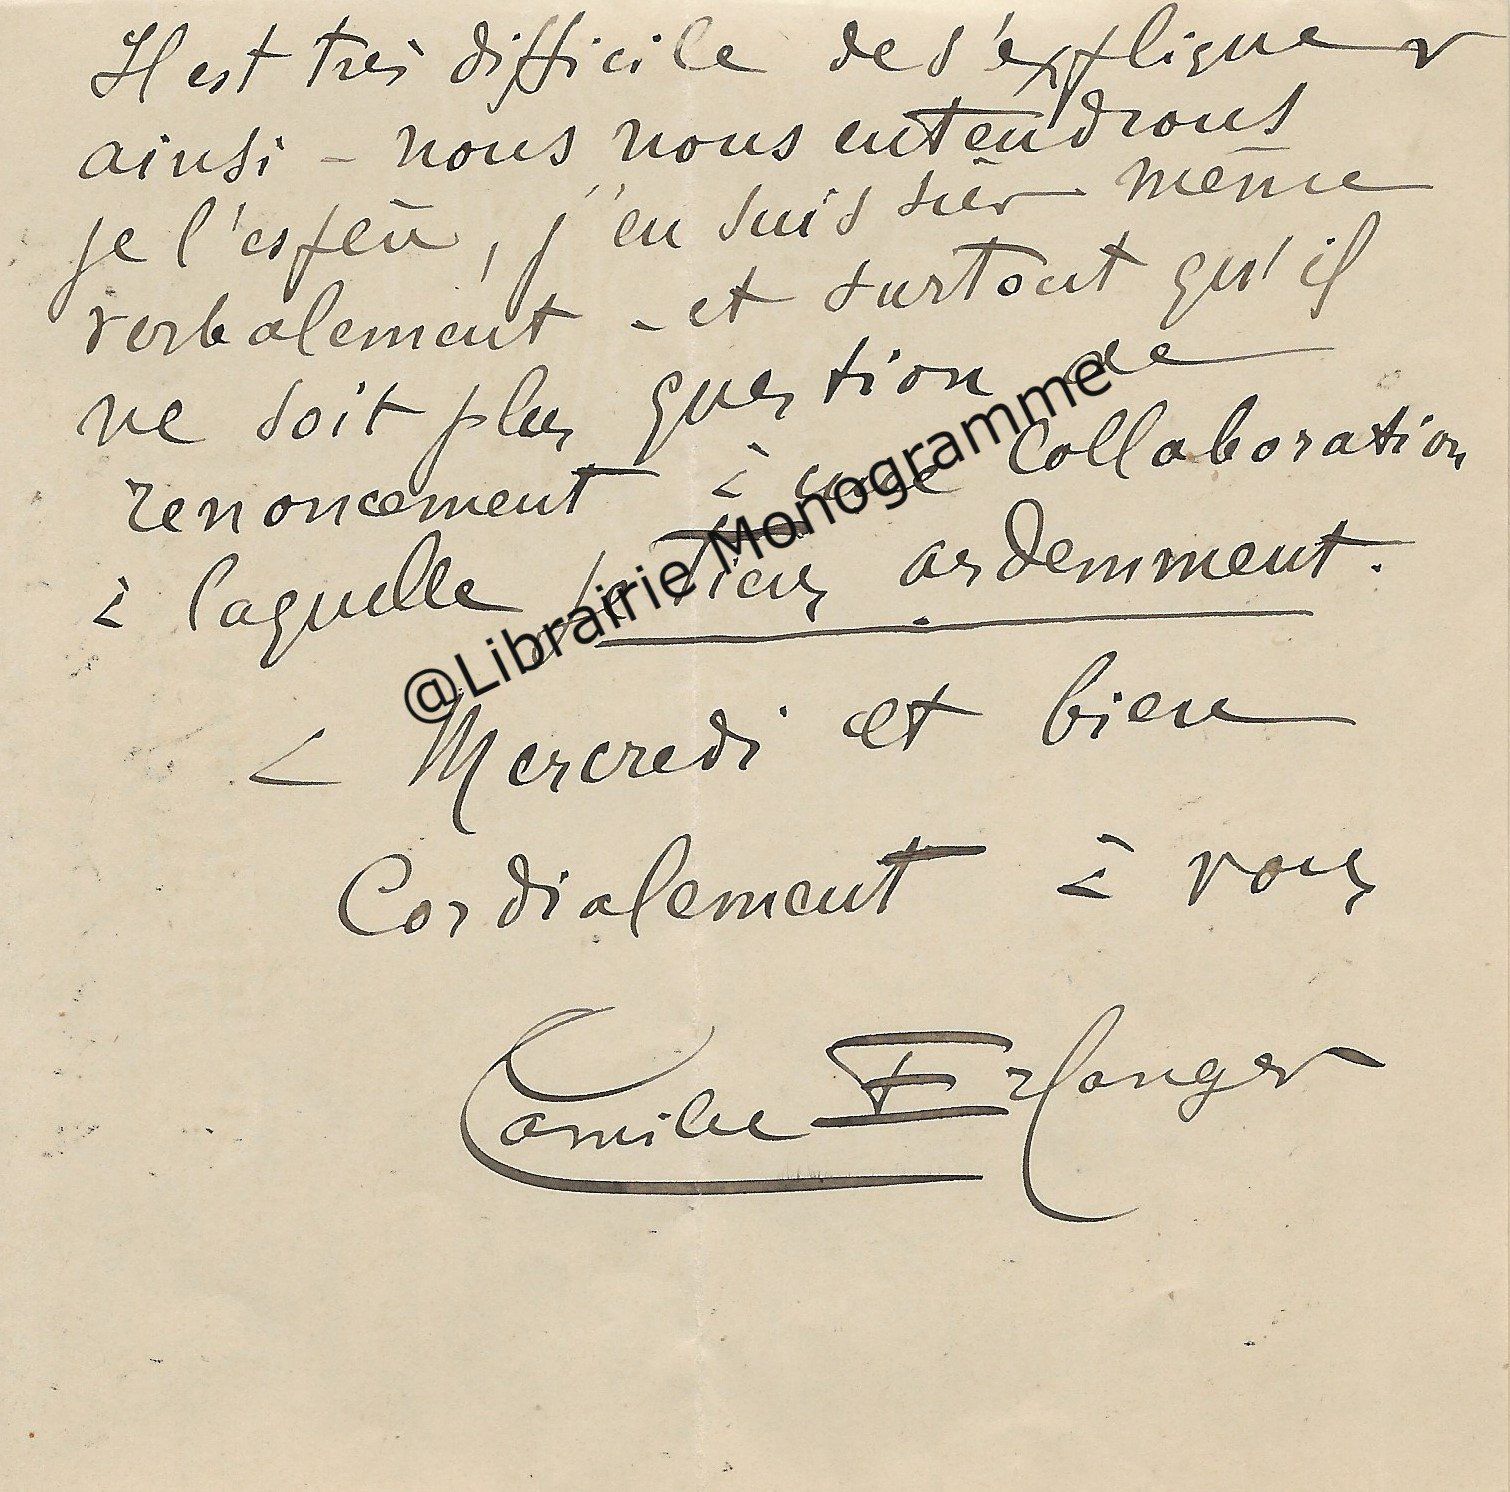 Il est très difficile de s'expliquer
ainsi - nous nous entendrons
je l'espère, j'en suis sûr même
verbalement - et surtout qu'il
ne soit plus question de
renoncement à une Collaboration
à laquelle je tiens ardemment.
@Librairie Monogramme
à Mercredi et bien
Cordialement à vous
Camille Erlanger